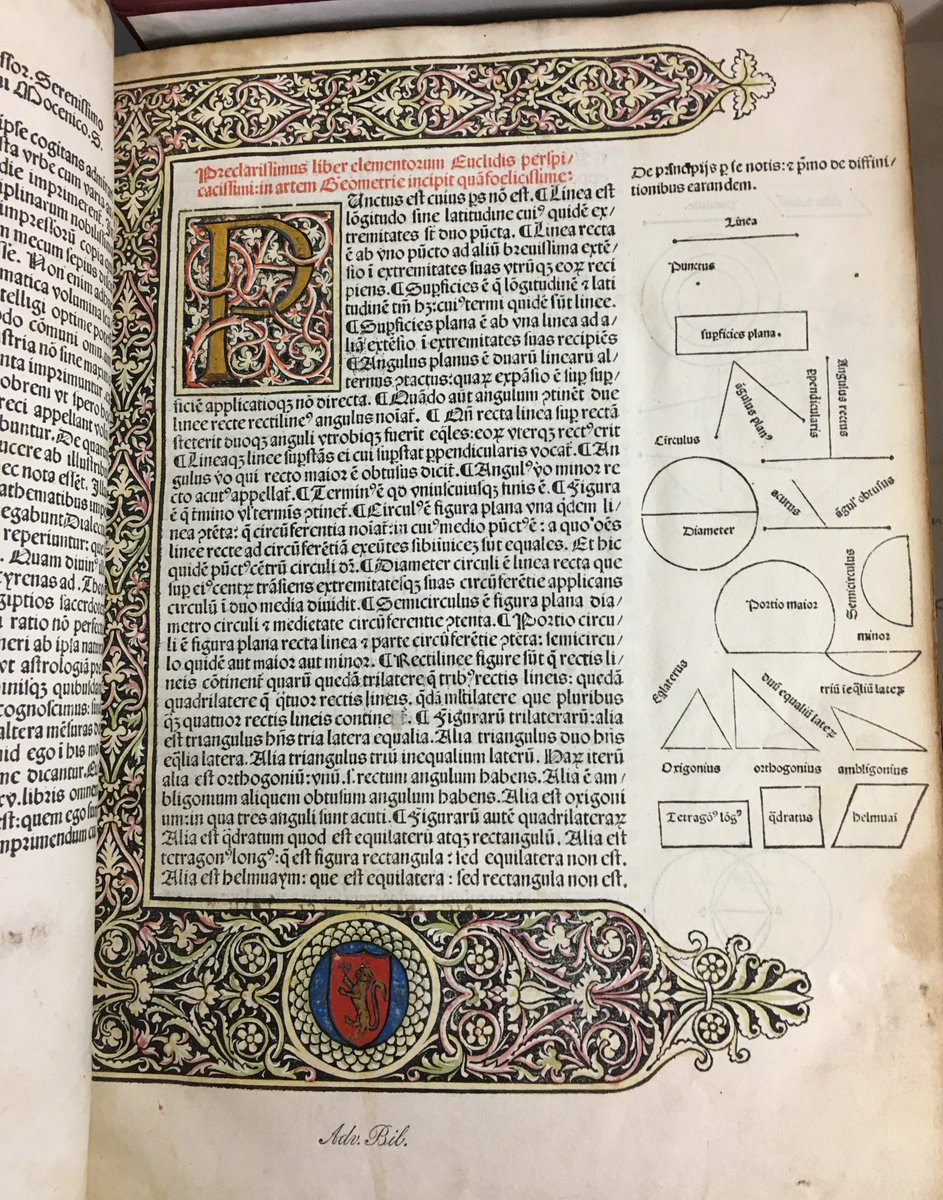 ssor. Serenissimo
Mocenico. S.
ipse cogitans
vrbe cum varia
die imprimerent
disciplinarum nobilis
impressorū copia
mecum sepius
Non enim
matica volumina
telligi optime
cōmuni omni
stria nō sine
imprimuntur
obrem vt spero
reci appellant
buntur. De
ucere ab illustrib
ec nota essēt.
athematibus
egabunt Dialec
reperiuntur: que
Quam diuin⁹
Cyrenas ad.
giptios sacerdot
ratio nō
neri ab ipsa
vt astrologiā
inisqꝫ quibus
cognoscimus:
altera mēsuras
uid ego ī his
ne dicantur.
libris omne
est: quem ego
mprimendum
Preclarissimus liber elementorum Euclidis perspi/
cacissimi: in artem Geometrie incipit quāfoelicissime:
PUnctus est cuius ps nō est. ¶Linea est
lōgitudo sine latitudine cui⁹ quidē ex/
tremitates st̄ duo pūcta. ¶Linea recta
ē ab vno pūcto ad aliū breuissima extē/
sio ī extremitates suas vtrūqꝫ eoꝝ reci
piens. ¶Supficies ē q̄ lōgitudinē ⁊ lati
tudinē tm̄ hꝫ: cui⁹ termi quidē sūt linee.
¶Supficies plana ē ab vna linea ad a/
liā extēsio ī extremitates suas recipiēs
¶Angulus planus ē duarū linearū al/
ternus ꝯtactus: quaꝝ expāsio ē sup sup/
ficiē applicatioqꝫ nō directa. ¶Quādo aūt angulum ꝯtinēt due
linee recte rectiline⁹ angulus noīat̄. ¶Qn̄ recta linea sup rectā
steterit duoqꝫ anguli vtrobiqꝫ fuerit eq̄les: eoꝝ vterqꝫ rect⁹ erit
¶Lineaqꝫ linee supstās ei cui supstat ppendicularis vocat̄. ¶An
gulus vo qui recto maior ē obtusus dicit̄. ¶Angul⁹ vo minor re
cto acut⁹ appellat̄. ¶Termin⁹ ē qd vniuscuiusqꝫ finis ē. ¶Figura
ē q̄ tmino vl̓ termis ꝯtinet̄. ¶Circul⁹ ē figura plana vna qdem li/
nea ꝯtēta: q̄ circūferentia noīat̄: in cui⁹ medio pūct⁹ ē: a quo oēs
linee recte ad circūferētiā exeūtes sibiīuicē sūt equales. Et hic
quidē pūct⁹ cētrū circuli dr̄. ¶Diameter circuli ē linea recta que
sup ei⁹ centꝝ trāsiens extremitatesqꝫ suas circūferētie applicans
circulū ī duo media diuidit. ¶Semicirculus ē figura plana dia/
metro circuli ⁊ medietate circūferentie ꝯtenta. ¶Portio circu/
li ē figura plana recta linea ⁊ parte circūferētie ꝯtēta: semicircu/
lo quidē aut maior aut minor. ¶Rectilinee figure sūt q̄ rectis li/
neis cōtinent̄ quarū quedā trilatere q̄ trib⁹ rectis lineis: quedā
quadrilatere q̄ qtuor rectis lineis. qdā mltilatere que pluribus
qꝫ quatuor rectis lineis continent̄. ¶Figurarū trilaterarū: alia
est triangulus hn̄s tria latera equalia. Alia triangulus duo hn̄s
eq̄lia latera. Alia triangulus triū inequalium laterū. Haꝝ iterū
alia est orthogoniū: vnū .s. rectum angulum habens. Alia ē am/
bligonium aliquem obtusum angulum habens. Alia est oxigoni
um: in qua tres anguli sunt acuti. ¶Figurarū autē quadrilateraꝝ
Alia est q̄dratum quod est equilaterū atqꝫ rectangulū. Alia est
tetragon⁹ long⁹: q̄ est figura rectangula: sed equilatera non est.
Alia est helmuaym: que est equilatera: sed rectangula non est.
De principijs p se notis: ⁊ pmo de diffini/
tionibus earandem.
Linea
Punctus
supficies plana.
āgulus plan⁹
ppendicularis
Angulus rectus
Circulus
Diameter
acutus
āgul⁹ obtusus
Portio maior
Semicirculus
minor
Eq̄laterus
duū equaliū lateꝝ
triū īeq̄liū lateꝝ
Oxigonius
orthogonius
ambligonius
Tetragō⁹ lōg⁹
q̄dratus
helmuai
Adv. Bib.